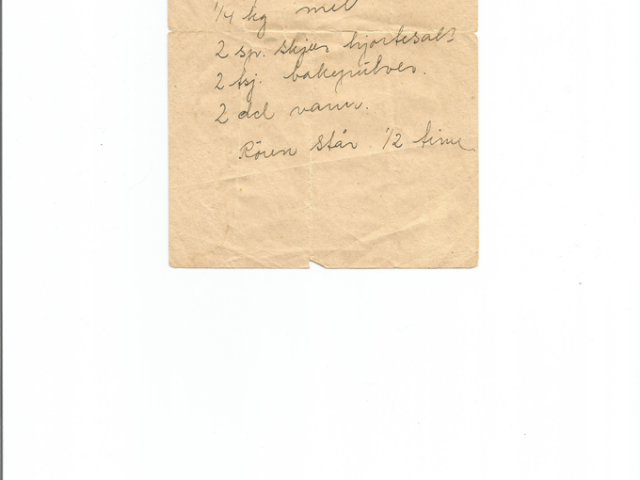 1/4 kg mel
2 sp. skjeer hjortesalt
2 tsj. bakepulver.
2 dcl vann.
Røren står 1/2 time